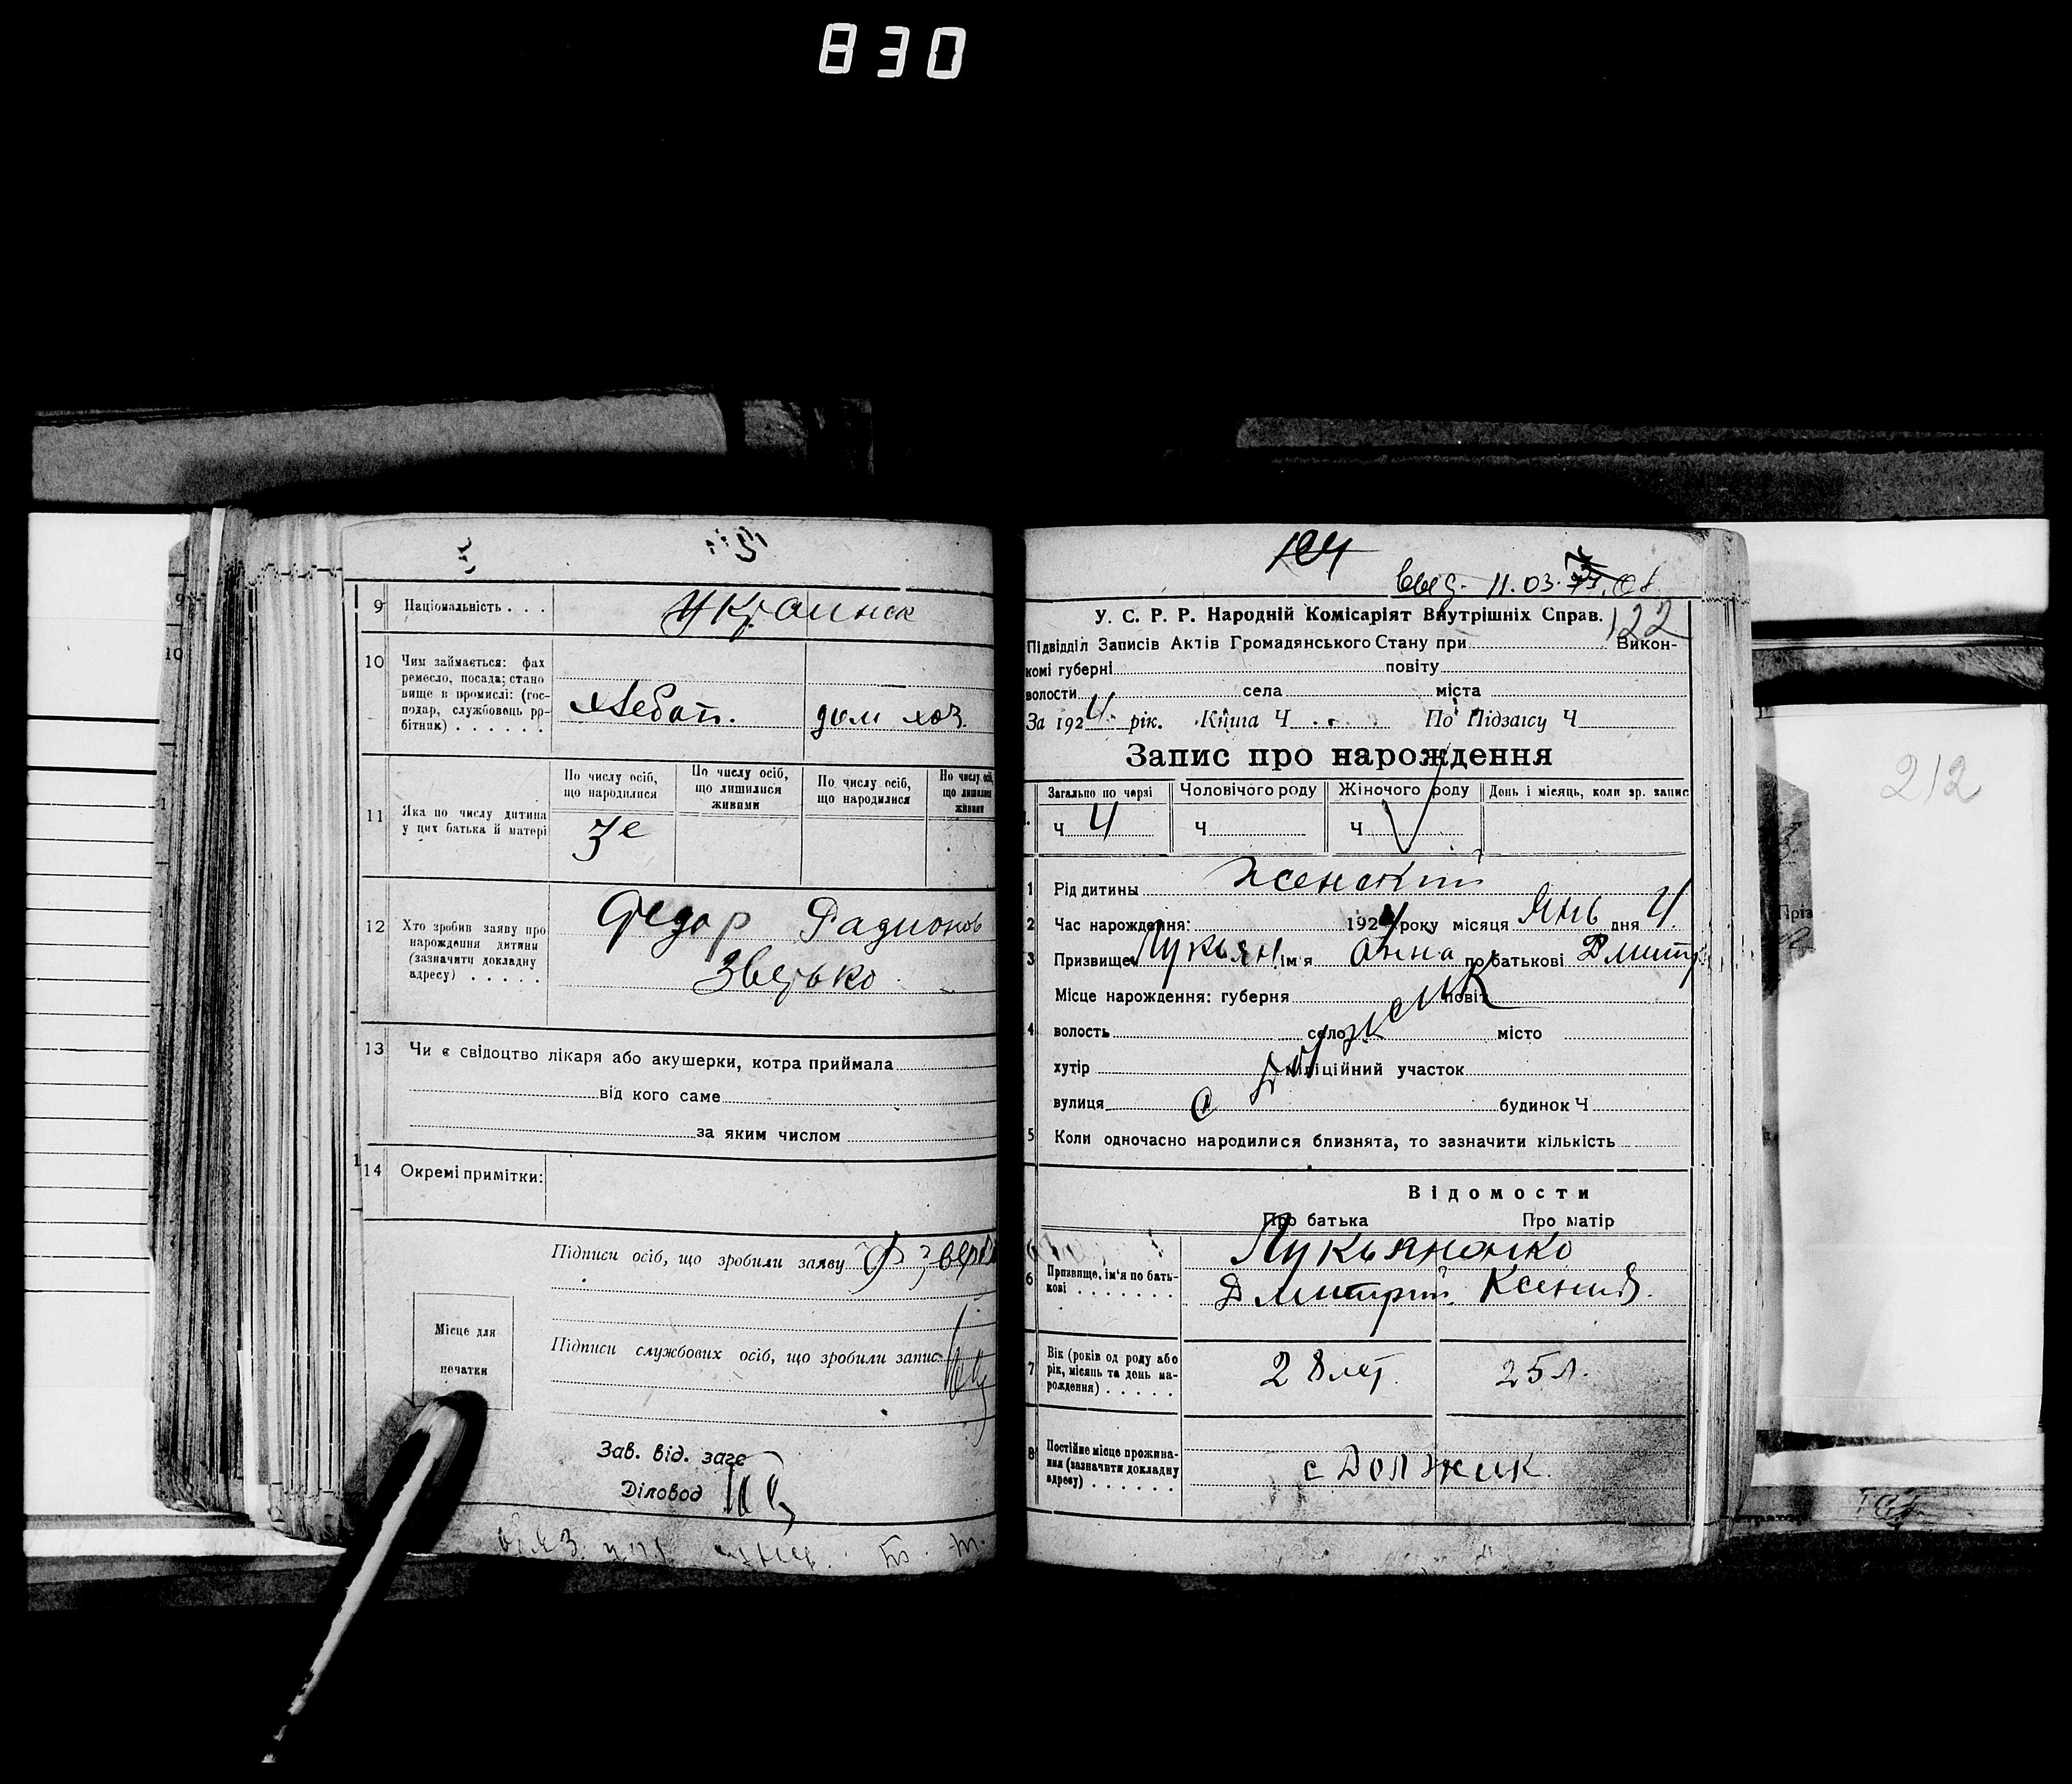 830
9 Національність . . . Украинск
10 Чим займається: фах
ремесло, посада; стано
вище в промислі: (гос-
подар, службовець ро-
бітник) . . . . . .
хлебоп. дом хоз.
11 Яка по числу дитина
у цих батька й матері
По числу осіб,
що народилися
По числу осіб,
що лишилися
живими
По числу осіб,
що народилися
По числу осіб,
що лишилися
живими
3е
12 Хто зробив заяву про
нарождення дитини
(зазначити докладну
адресу) . . . . .
Федор Радионов
Зверько
13 Чи є свідоцтво лікаря або акушерки, котра приймала
від кого саме
за яким числом
14 Окремі примітки:
Підписи осіб, що зробили заяву Ф Зверь
Місце для
печатки
Підписи службових осіб, що зробили запис
Зав. від. загс
Діловод
124
выд. 11.03.
У. С. Р. Р. Народній Комісаріят Внутрішніх Справ. 122
Підвідділ Записів Актів Громадянського Стану при Викон-
комі губерні повіту
волости села міста
За 1924 рік. Книга Ч По Підзагсу Ч
Запис про нарождення
Загально по черзі Чоловічого роду Жіночого роду День і місяць, коли зр. запис
Ч 4 Ч Ч V
1 Рід дитини Женский
2 Час нарождення: 1924 року місяця Янв дня 4.
3 Призвище Лукьян ім'я Анна по батькові Дмитр
Місце нарождення: губерня повіт
4 волость село місто
хутір міліційний участок
вулиця будинок Ч
с Должик
5 Коли одночасно народилися близнята, то зазначити кількість
Відомости
Про батька Про матір
6 Призвище, ім'я по бать-
кові . . . . . . .
Лукьяненко
Дмитрий Ксения.
7 Вік (років од роду або
рік, місяць та день на-
рождення) . . . . .
28 лет. 25 л.
8 Постійне місце прожива-
ння (зазначити докладну
адресу) . . . . . .
с Должик.
212